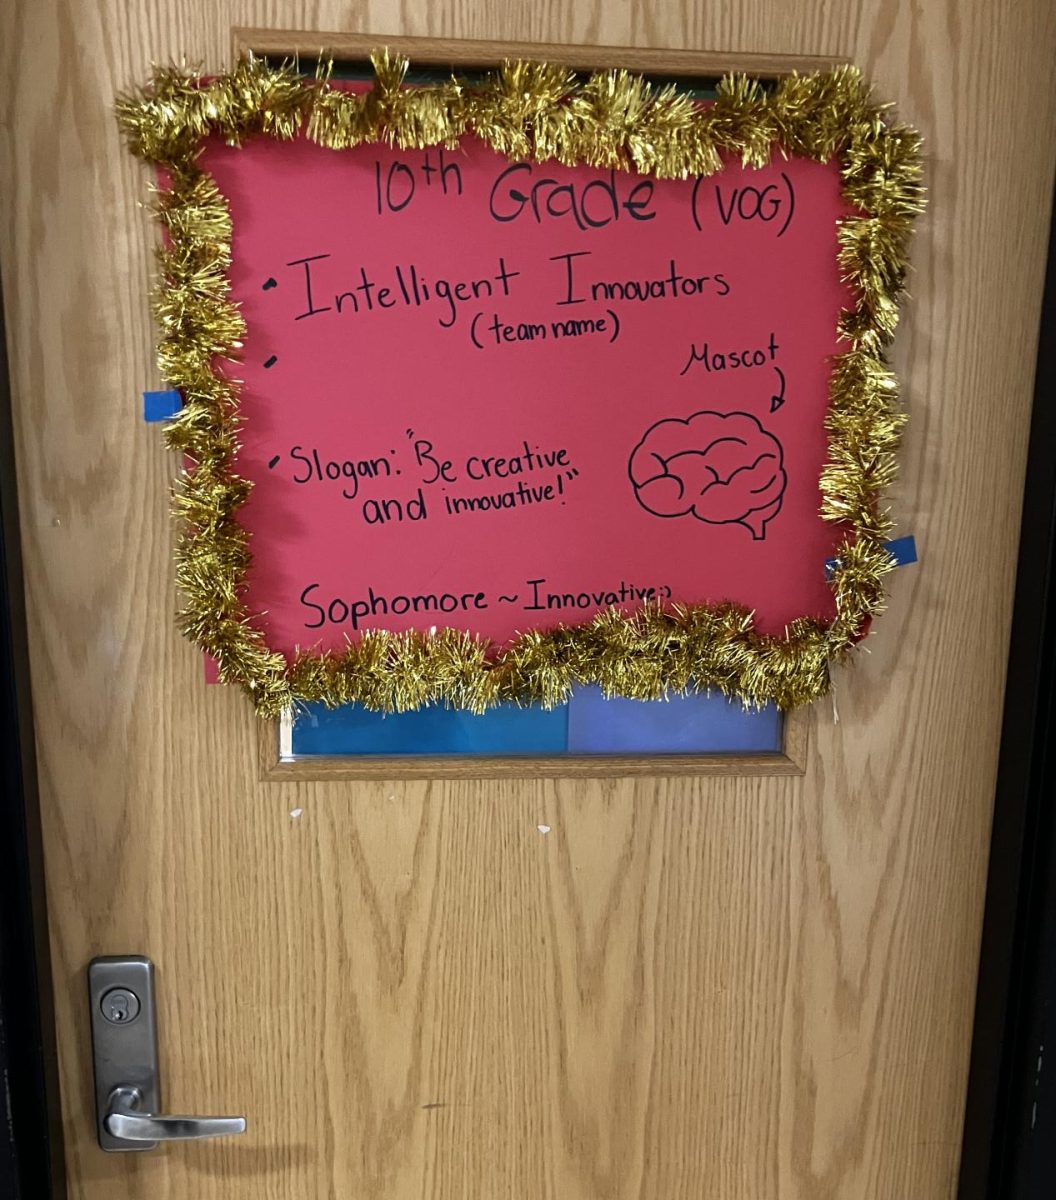 10th Grade (VOG)
• Intelligent Innovators
(team name)
•
Mascot
• Slogan: "Be creative
and innovative!"
Sophomore ~ Innovative :)